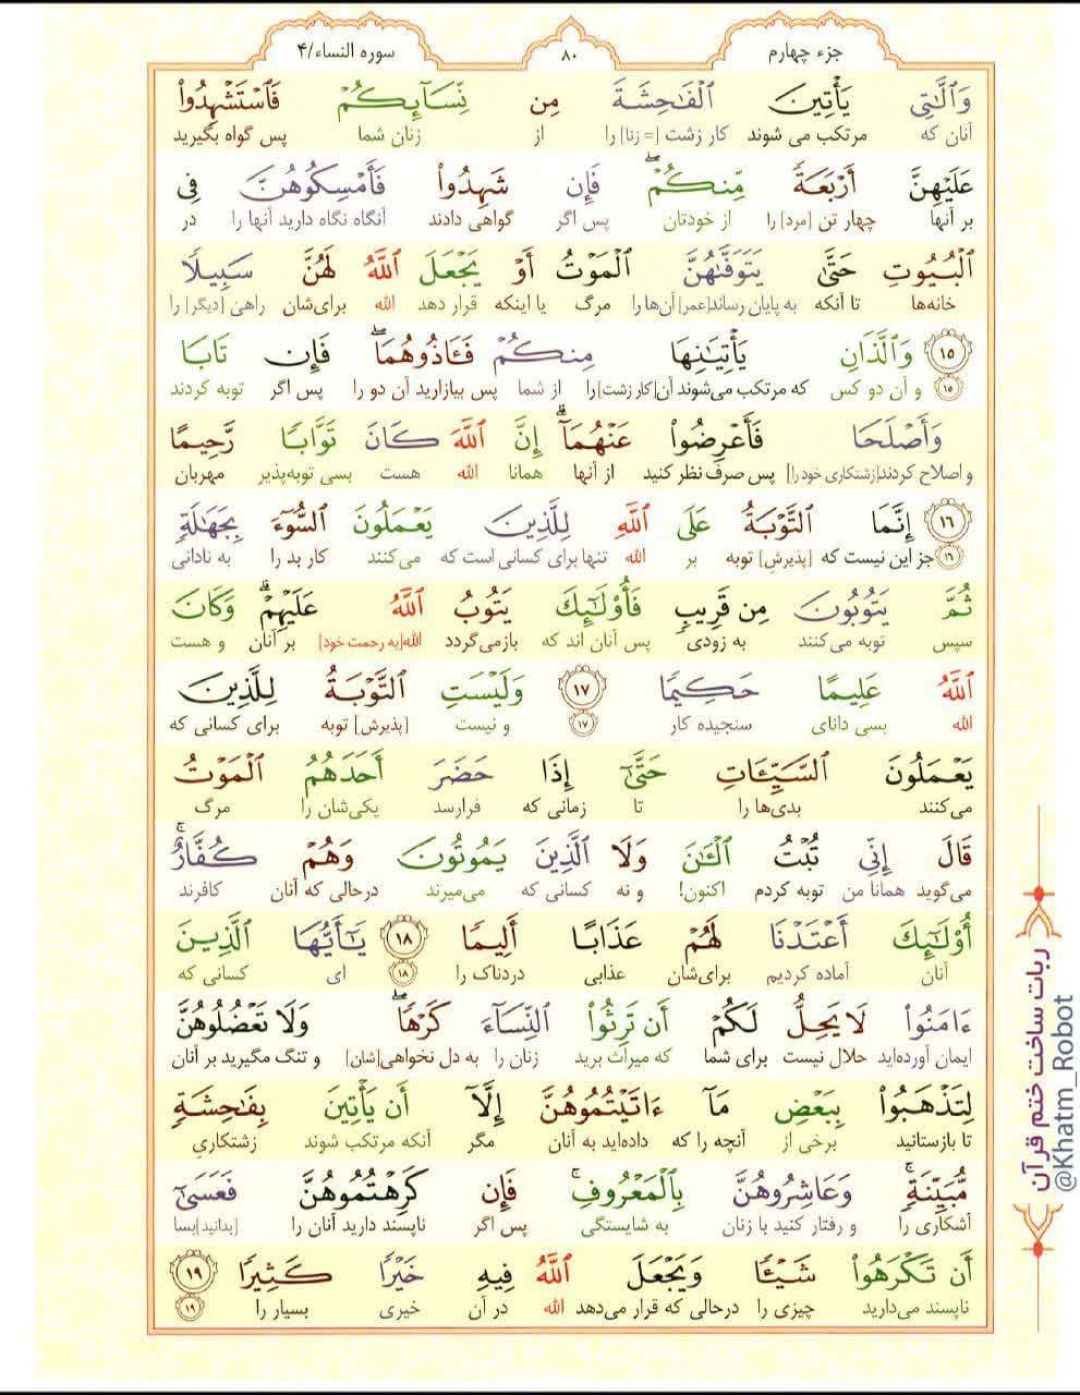 جزء چهارم
۸۰
سوره النساء/۴
وَٱلَّٰتِى يَأْتِينَ ٱلْفَٰحِشَةَ مِن نِّسَآئِكُمْ فَٱسْتَشْهِدُوا۟
آنان که مرتکب می شوند کار زشت [= زنا] را از زنان شما پس گواه بگیرید
عَلَيْهِنَّ أَرْبَعَةً مِّنكُمْ ۖ فَإِن شَهِدُوا۟ فَأَمْسِكُوهُنَّ فِى
بر آنها چهار تن [مرد] را از خودتان پس اگر گواهی دادند آنگاه نگاه دارید آنها را در
ٱلْبُيُوتِ حَتَّىٰ يَتَوَفَّىٰهُنَّ ٱلْمَوْتُ أَوْ يَجْعَلَ ٱللَّهُ لَهُنَّ سَبِيلًا
خانه‌ها تا آنکه به پایان رساند[عمر] آن‌ها را مرگ یا اینکه قرار دهد الله برای‌شان راهی [دیگر] را
۱۵ وَٱلَّذَانِ يَأْتِيَٰنِهَا مِنكُمْ فَـَٔاذُوهُمَا ۖ فَإِن تَابَا
۱۵ و آن دو کس که مرتکب می‌شوند آن[کار زشت] را از شما پس بیازارید آن دو را پس اگر توبه کردند
وَأَصْلَحَا فَأَعْرِضُوا۟ عَنْهُمَآ ۗ إِنَّ ٱللَّهَ كَانَ تَوَّابًا رَّحِيمًا
و اصلاح کردند[زشتکاری خود را] پس صرف نظر کنید از آنها همانا الله هست بسی توبه‌پذیر مهربان
۱۶ إِنَّمَا ٱلتَّوْبَةُ عَلَى ٱللَّهِ لِلَّذِينَ يَعْمَلُونَ ٱلسُّوٓءَ بِجَهَٰلَةٍ
۱۶ جز این نیست که [پذیرش] توبه بر الله تنها برای کسانی است که می‌کنند کار بد را به نادانی
ثُمَّ يَتُوبُونَ مِن قَرِيبٍ فَأُو۟لَٰٓئِكَ يَتُوبُ ٱللَّهُ عَلَيْهِمْ ۗ وَكَانَ
سپس توبه می‌کنند به زودی پس آنان اند که بازمی‌گردد الله[به رحمت خود] بر آنان و هست
ٱللَّهُ عَلِيمًا حَكِيمًا ۱۷ وَلَيْسَتِ ٱلتَّوْبَةُ لِلَّذِينَ
الله بسی دانای سنجیده کار ۱۷ و نیست [پذیرش] توبه برای کسانی که
يَعْمَلُونَ ٱلسَّيِّـَٔاتِ حَتَّىٰٓ إِذَا حَضَرَ أَحَدَهُمُ ٱلْمَوْتُ
می‌کنند بدی‌ها را تا زمانی که فرارسد یکی‌شان را مرگ
قَالَ إِنِّى تُبْتُ ٱلْـَٰٔنَ وَلَا ٱلَّذِينَ يَمُوتُونَ وَهُمْ كُفَّارٌ ۚ
می‌گوید همانا من توبه کردم اکنون! و نه کسانی که می‌میرند درحالی که آنان کافرند
أُو۟لَٰٓئِكَ أَعْتَدْنَا لَهُمْ عَذَابًا أَلِيمًا ۱۸ يَٰٓأَيُّهَا ٱلَّذِينَ
آنان آماده کردیم برای‌شان عذابی دردناک را ۱۸ ای کسانی که
ءَامَنُوا۟ لَا يَحِلُّ لَكُمْ أَن تَرِثُوا۟ ٱلنِّسَآءَ كَرْهًا ۖ وَلَا تَعْضُلُوهُنَّ
ایمان آورده‌اید حلال نیست برای شما که میراث برید زنان را به دل نخواهی[شان] و تنگ مگیرید بر آنان
لِتَذْهَبُوا۟ بِبَعْضِ مَآ ءَاتَيْتُمُوهُنَّ إِلَّآ أَن يَأْتِينَ بِفَٰحِشَةٍ
تا بازستانید برخی از آنچه را که داده‌اید به آنان مگر آنکه مرتکب شوند زشتکاری
مُّبَيِّنَةٍ ۚ وَعَاشِرُوهُنَّ بِٱلْمَعْرُوفِ ۚ فَإِن كَرِهْتُمُوهُنَّ فَعَسَىٰٓ
آشکاری را و رفتار کنید با زنان به شایستگی پس اگر ناپسند دارید آنان را [بدانید]بسا
أَن تَكْرَهُوا۟ شَيْـًٔا وَيَجْعَلَ ٱللَّهُ فِيهِ خَيْرًا كَثِيرًا ۱۹
ناپسند می‌دارید چیزی را درحالی که قرار می‌دهد الله در آن خیری بسیار را ۱۹
ربات ساخت ختم قرآن
@Khatm_Robot